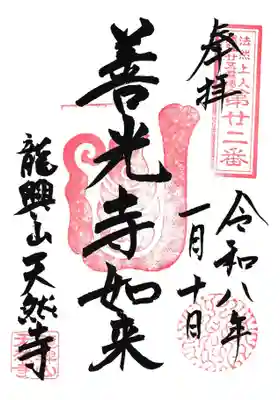 法然上人
第廿二番
奉拝
令和八年
一月十日
善光寺如来
龍興山天然寺